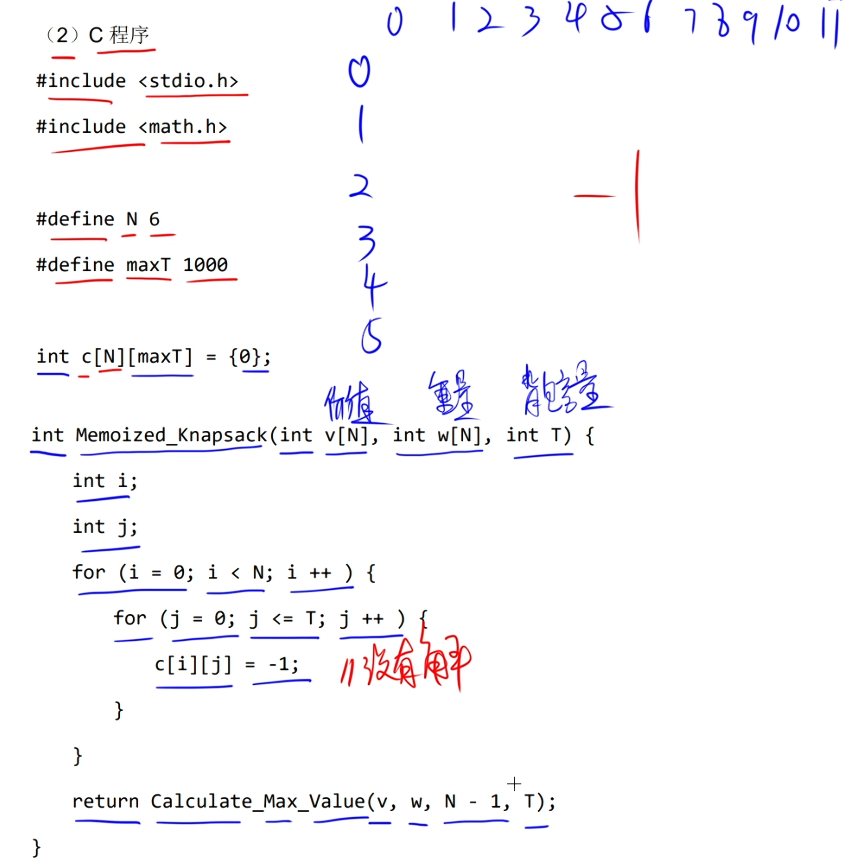 0 1 2 3 4 5 6 7 8 9 10 11
（2）C 程序
0
#include <stdio.h>
1
#include <math.h>
2
-1
#define N 6
3
#define maxT 1000
4
5
int c[N][maxT] = {0};
价值 重量 背包容量
int Memoized_Knapsack(int v[N], int w[N], int T) {
int i;
int j;
for (i = 0; i < N; i ++ ) {
for (j = 0; j <= T; j ++ ) {
c[i][j] = -1; //没有解
}
}
return Calculate_Max_Value(v, w, N - 1, T);
}